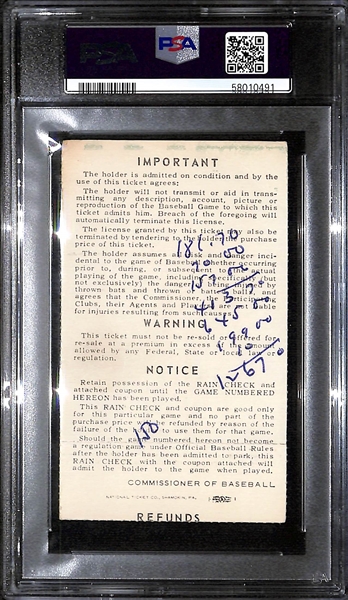 PSA
PSA
58010491
IMPORTANT
The holder is admitted on condition and by the
use of this ticket agrees;
The holder will not transmit or aid in trans-
mitting any description, account, picture or
reproduction of the Baseball Game to which this
ticket admits him. Breach of the foregoing will
automatically terminate this license.
The license granted by this ticket may also be
terminated by tendering to the holder the purchase
price of this ticket.
The holder assumes all risk and danger inci-
dental to the game of baseball whether occurring
prior to, during, or subsequent to the actual
playing of the game, including specifically (but
not exclusively) the danger of being injured by
thrown bats and thrown or batted balls, and
agrees that the Commissioner, the Participating
Clubs, their Agents and Players are not liable
for injuries resulting from such causes.
WARNING
This ticket must not be re-sold or offered for
re-sale at a premium in excess of the amount
allowed by any Federal, State or local law or
regulation.
NOTICE
Retain possession of the RAIN CHECK and
attached coupon until the GAME NUMBERED
HEREON has been played.
This RAIN CHECK and coupon are good only
for this particular game and no part of the
purchase price will be refunded by reason of the
failure of the holder to use them for that game.
Should the game numbered hereon not become
a regulation game under Official Baseball Rules
after the holder has been admitted to park, this
RAIN CHECK with the coupon attached will
admit the holder to the game when played.
COMMISSIONER OF BASEBALL
NATIONAL TICKET CO., SHAMOKIN, PA.
REFUNDS